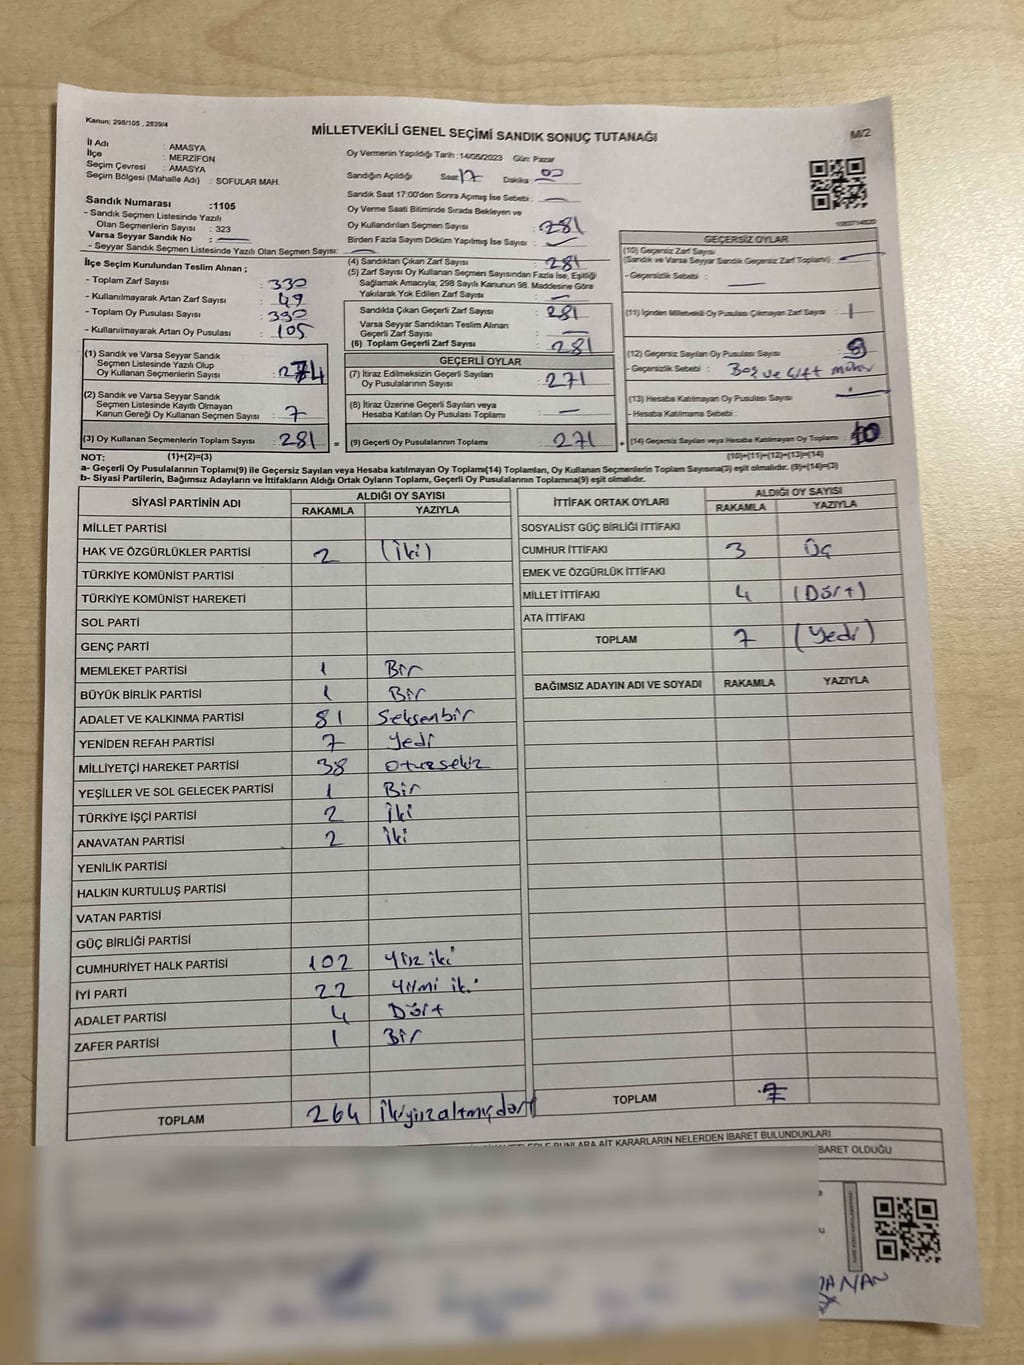 Kanun: 298/105 , 2839/4
MİLLETVEKİLİ GENEL SEÇİMİ SANDIK SONUÇ TUTANAĞI
M/2
İl Adı : AMASYA
İlçe : MERZİFON
Seçim Çevresi : AMASYA
Seçim Bölgesi (Mahalle Adı) : SOFULAR MAH.
Sandık Numarası :1105
- Sandık Seçmen Listesinde Yazılı
Olan Seçmenlerin Sayısı : 323
Varsa Seyyar Sandık No :
- Seyyar Sandık Seçmen Listesinde Yazılı Olan Seçmen Sayısı:
İlçe Seçim Kurulundan Teslim Alınan ;
- Toplam Zarf Sayısı : 330
- Kullanılmayarak Artan Zarf Sayısı : 49
- Toplam Oy Pusulası Sayısı : 330
- Kullanılmayarak Artan Oy Pusulası : 105
(1) Sandık ve Varsa Seyyar Sandık
Seçmen Listesinde Yazılı Olup
Oy Kullanan Seçmenlerin Sayısı : 274
(2) Sandık ve Varsa Seyyar Sandık
Seçmen Listesinde Kayıtlı Olmayan
Kanun Gereği Oy Kullanan Seçmen Sayısı : 7
(3) Oy Kullanan Seçmenlerin Toplam Sayısı : 281 =
Oy Vermenin Yapıldığı Tarih :14/05/2023 Gün: Pazar
Sandığın Açıldığı Saat: 17 Dakika : 00
Sandık Saat 17:00'den Sonra Açmış İse Sebebi : —
Oy Verme Saati Bitiminde Sırada Bekleyen ve
Oy Kullandırılan Seçmen Sayısı : 281
Birden Fazla Sayım Döküm Yapılmış İse Sayısı :
(4) Sandıktan Çıkan Zarf Sayısı : 281
(5) Zarf Sayısı Oy Kullanan Seçmen Sayısından Fazla İse, Eşitliği
Sağlamak Amacıyla; 298 Sayılı Kanunun 98. Maddesine Göre
Yakılarak Yok Edilen Zarf Sayısı : —
Sandıkta Çıkan Geçerli Zarf Sayısı : 281
Varsa Seyyar Sandıktan Teslim Alınan
Geçerli Zarf Sayısı : —
(6) Toplam Geçerli Zarf Sayısı : 281
GEÇERLİ OYLAR
(7) İtiraz Edilmeksizin Geçerli Sayılan
Oy Pusulalarının Sayısı : 271
(8) İtiraz Üzerine Geçerli Sayılan veya
Hesaba Katılan Oy Pusulası Toplamı : —
(9) Geçerli Oy Pusulalarının Toplamı : 271 +
GEÇERSİZ OYLAR
(10) Geçersiz Zarf Sayısı
(Sandık ve Varsa Seyyar Sandık Geçersiz Zarf Toplamı) : —
- Geçersizlik Sebebi : —
(11) İçinden Milletvekili Oy Pusulası Çıkmayan Zarf Sayısı : 1
(12) Geçersiz Sayılan Oy Pusulası Sayısı : 9
- Geçersizlik Sebebi : Boş ve Çift mühür
(13) Hesaba Katılmayan Oy Pusulası Sayısı : —
- Hesaba Katılmama Sebebi :
(14) Geçersiz Sayılan veya Hesaba Katılmayan Oy Toplamı : 10
NOT: (1)+(2)=(3) (10)+(11)+(12)+(13)=(14)
a- Geçerli Oy Pusulalarının Toplamı(9) ile Geçersiz Sayılan veya Hesaba katılmayan Oy Toplamı(14) Toplamları, Oy Kullanan Seçmenlerin Toplam Sayısına(3) eşit olmalıdır. (9)+(14)=(3)
b- Siyasi Partilerin, Bağımsız Adayların ve İttifakların Aldığı Ortak Oyların Toplamı, Geçerli Oy Pusulalarının Toplamına(9) eşit olmalıdır.
SİYASİ PARTİNİN ADI ALDIĞI OY SAYISI
RAKAMLA YAZIYLA
MİLLET PARTİSİ
HAK VE ÖZGÜRLÜKLER PARTİSİ 2 (İki)
TÜRKİYE KOMÜNİST PARTİSİ
TÜRKİYE KOMÜNİST HAREKETİ
SOL PARTİ
GENÇ PARTİ
MEMLEKET PARTİSİ 1 Bir
BÜYÜK BİRLİK PARTİSİ 1 Bir
ADALET VE KALKINMA PARTİSİ 81 Seksenbir
YENİDEN REFAH PARTİSİ 7 Yedi
MİLLİYETÇİ HAREKET PARTİSİ 38 otuzsekiz
YEŞİLLER VE SOL GELECEK PARTİSİ 1 Bir
TÜRKİYE İŞÇİ PARTİSİ 2 İki
ANAVATAN PARTİSİ 2 İki
YENİLİK PARTİSİ
HALKIN KURTULUŞ PARTİSİ
VATAN PARTİSİ
GÜÇ BİRLİĞİ PARTİSİ
CUMHURİYET HALK PARTİSİ 102 Yüz iki
İYİ PARTİ 22 Yirmi iki
ADALET PARTİSİ 4 Dört
ZAFER PARTİSİ 1 Bir
TOPLAM 264 İkiyüzaltmışdört
İTTİFAK ORTAK OYLARI ALDIĞI OY SAYISI
RAKAMLA YAZIYLA
SOSYALİST GÜÇ BİRLİĞİ İTTİFAKI
CUMHUR İTTİFAKI 3 Üç
EMEK VE ÖZGÜRLÜK İTTİFAKI
MİLLET İTTİFAKI 4 (Dört)
ATA İTTİFAKI
TOPLAM 7 (Yedi)
BAĞIMSIZ ADAYIN ADI VE SOYADI RAKAMLA YAZIYLA
TOPLAM 7
BUNLARA AİT KARARLARIN NELERDEN İBARET BULUNDUKLARI
İBARET OLDUĞU